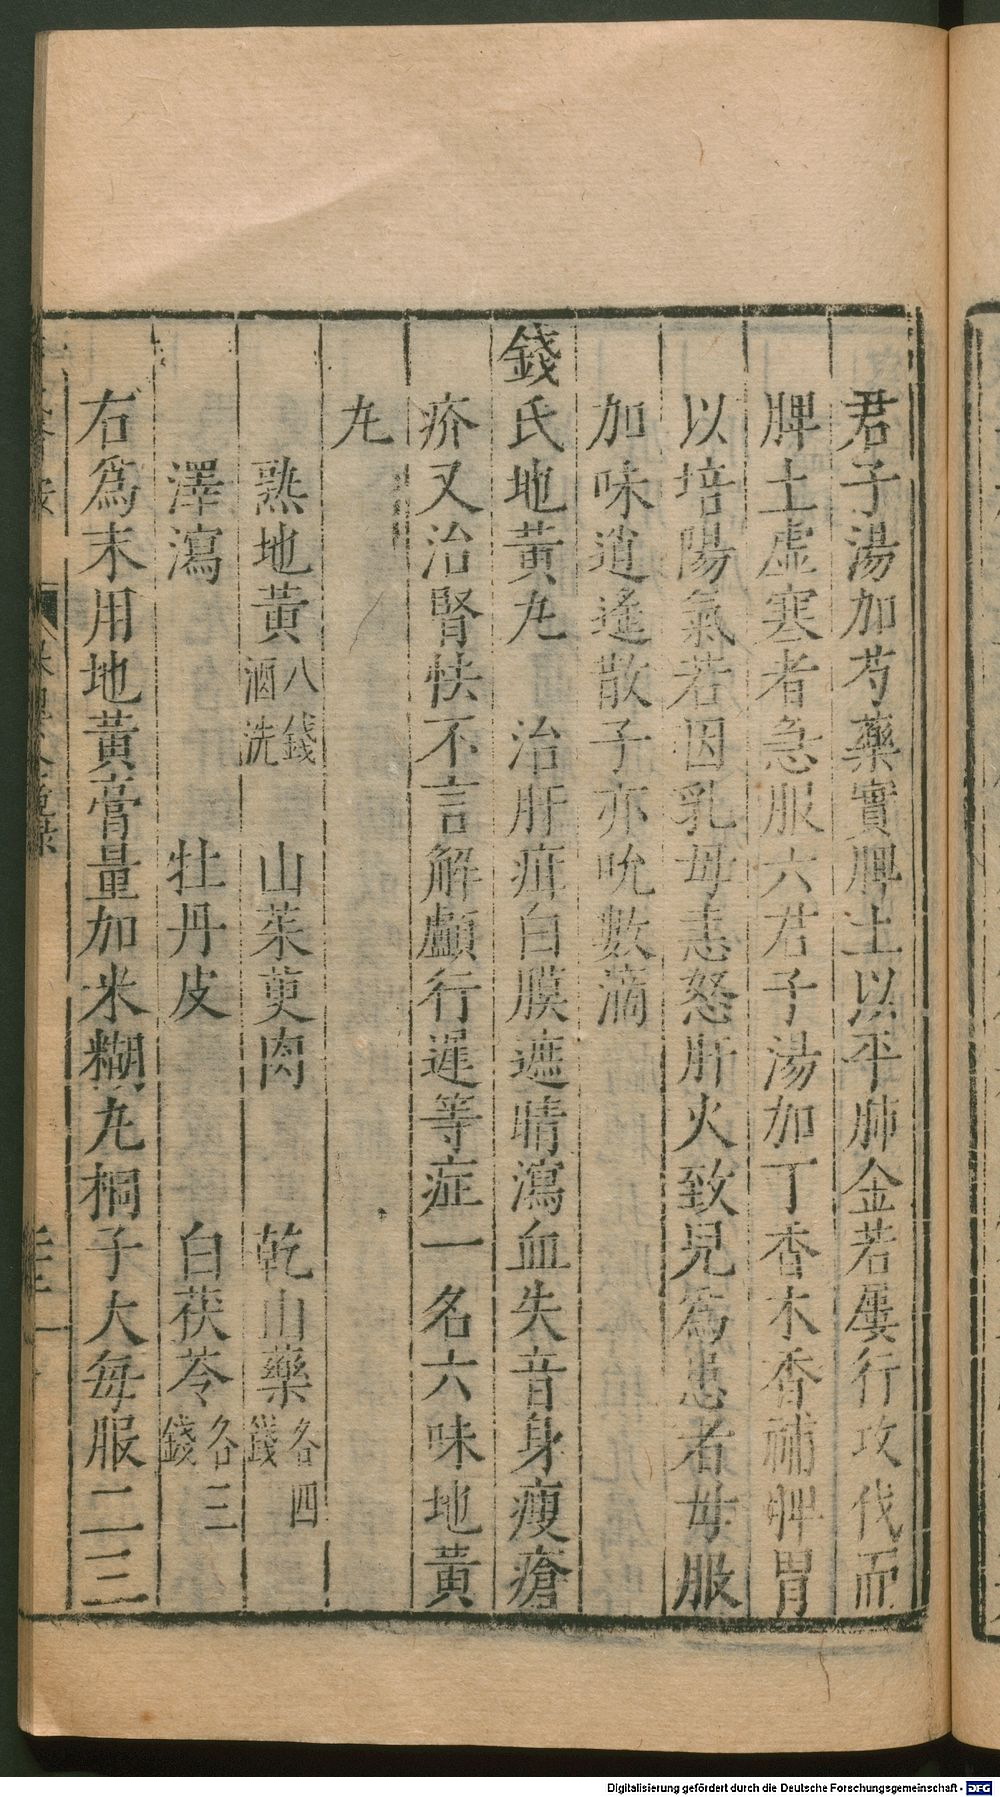 君子湯加芍藥實脾土以平肺金若屢行攻伐而
脾土虛寒者急服六君子湯加丁香木香補脾胃
以培陽氣若因乳母恚怒肝火致兒爲患者母服
加味逍遙散子亦吮數滴
錢氏地黃丸　治肝疳白膜遮睛瀉血失音身瘦瘡
疥又治腎怯不言解顱行遲等症一名六味地黃
丸
熟地黃八錢酒洗　山茱萸肉　乾山藥各四錢
澤瀉　牡丹皮　白茯苓各三錢
右爲末用地黃膏量加米糊丸桐子大每服二三
Digitalisierung gefördert durch die Deutsche Forschungsgemeinschaft - DFG